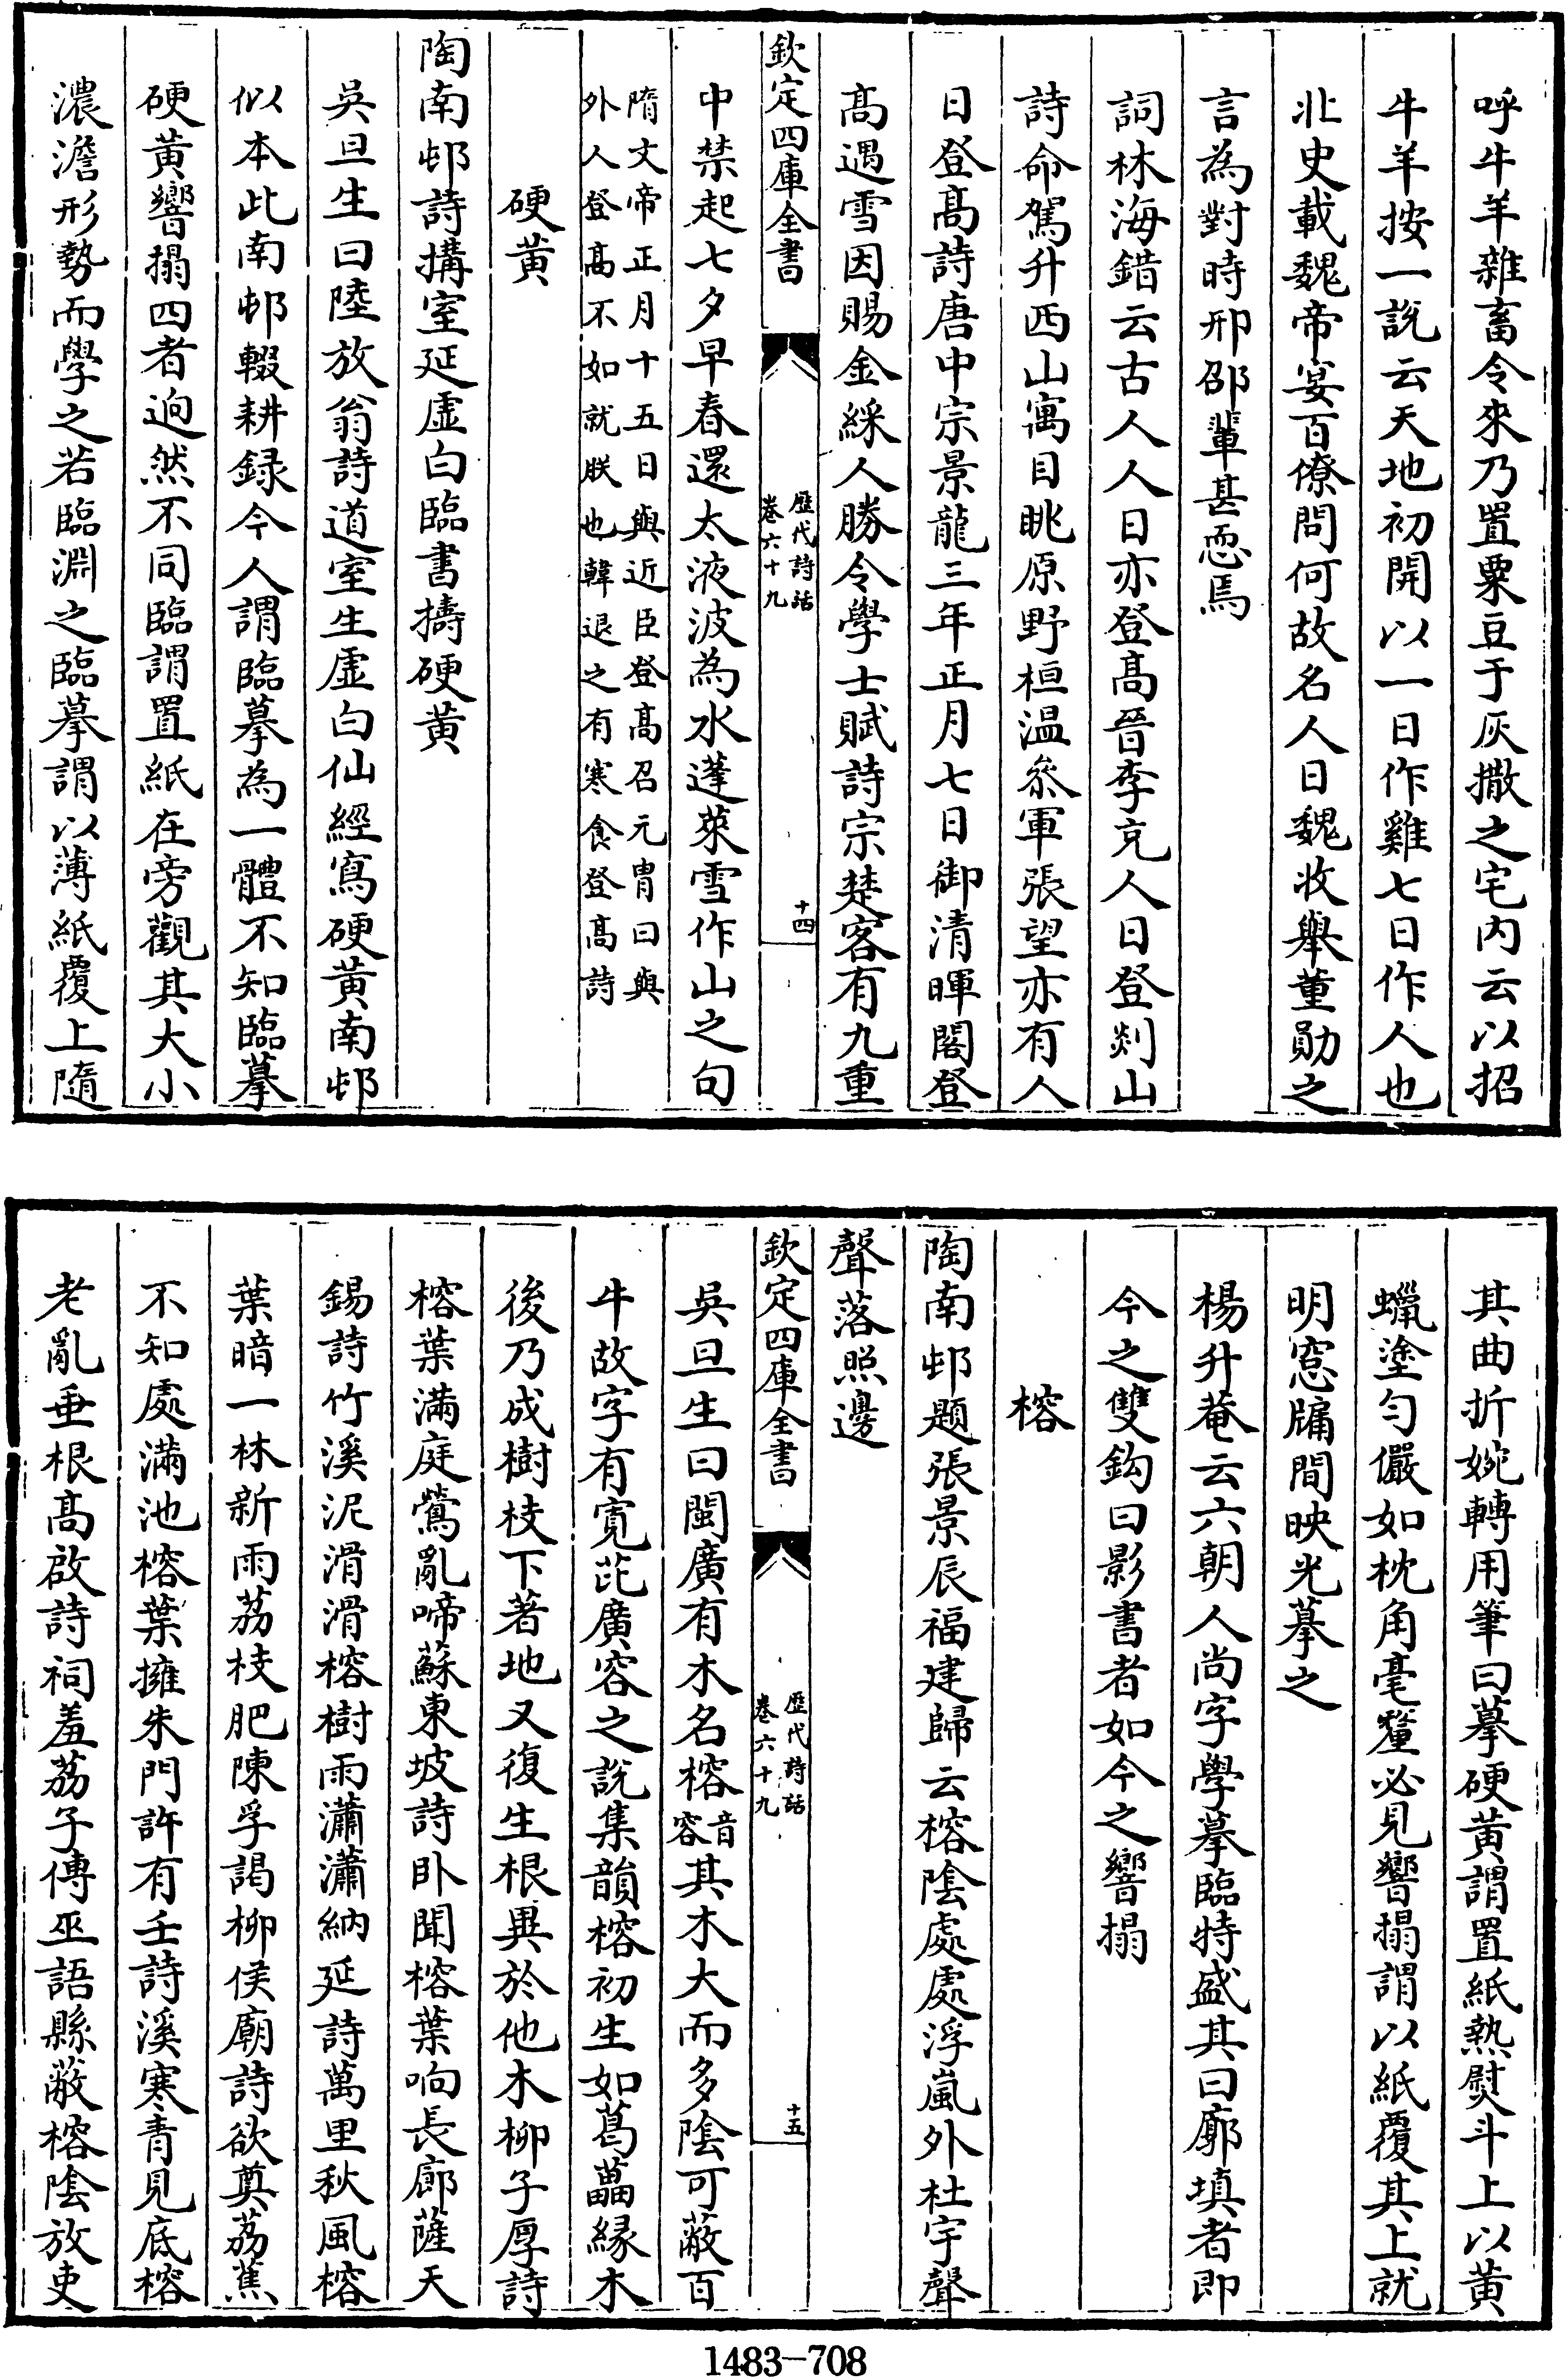 呼牛羊雜畜令來乃置粟豆于灰撒之宅内云以招
牛羊按一説云天地初開以一日作雞七日作人也
北史載魏帝宴百僚問何故名人日魏收舉董勛之
言為對時邢邵輩甚恧焉
詞林海錯云古人人日亦登髙晉李充人日登剡山
詩命駕升西山寓目眺原野桓温叅軍張望亦有人
日登髙詩唐中宗景龍三年正月七日御清暉閣登
髙遇雪因賜金綵人勝令學士賦詩宗楚客有九重
欽定四庫全書
歴代詩話
卷六十九
十四
中禁起七夕早春還太液波為水蓬萊雪作山之句
隋文帝正月十五日與近臣登髙召元胄曰與
外人登髙不如就朕也韓退之有寒食登髙詩
硬黄
陶南邨詩搆室延虚白臨書擣硬黄
吳旦生曰陸放翁詩道室生虚白仙經寫硬黄南邨
似本此南邨輟耕録今人謂臨摹為一體不知臨摹
硬黄響搨四者逈然不同臨謂置紙在旁觀其大小
濃澹形勢而學之若臨淵之臨摹謂以薄紙覆上隨
其曲折婉轉用筆曰摹硬黄謂置紙熱熨斗上以黄
蠟塗勻儼如枕角毫釐必見響搨謂以紙覆其上就
明窓牖間映光摹之
楊升菴云六朝人尚字學摹臨特盛其曰廓填者即
今之雙鈎曰影書者如今之響搨
榕
陶南邨題張景辰福建歸云榕陰處處浮嵐外杜宇聲
聲落照邊
欽定四庫全書
歴代詩話
卷六十九
十五
吳旦生曰閩廣有木名榕音容其木大而多陰可蔽百
牛故字有寛茈廣容之説集韻榕初生如葛藟緣木
後乃成樹枝下著地又復生根異於他木柳子厚詩
榕葉滿庭鶯亂啼蘇東坡詩卧聞榕葉响長廊薩天
錫詩竹溪泥滑滑榕樹雨瀟瀟納延詩萬里秋風榕
葉暗一林新雨荔枝肥陳孚謁柳侯廟詩欲奠荔蕉
不知處滿池榕葉擁朱門許有壬詩溪寒青見底榕
老亂垂根髙啟詩祠羞荔子傅巫語縣蔽榕陰放吏
1483—708